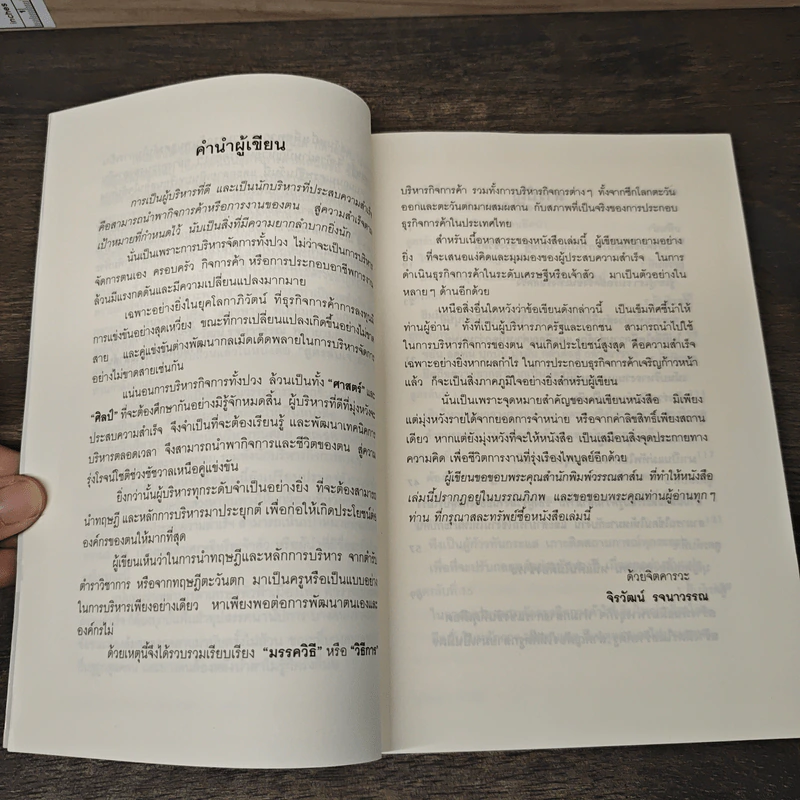 inches
คำนำผู้เขียน
การเป็นผู้บริหารที่ดี และเป็นนักบริหารที่ประสบความสำเร็จ
คือสามารถนำพากิจการค้าหรือการงานของตน สู่ความสำเร็จตาม
เป้าหมายที่กำหนดไว้ นับเป็นสิ่งที่มีความยากลำบากยิ่งนัก
นั่นเป็นเพราะการบริหารจัดการทั้งปวง ไม่ว่าจะเป็นการบริหาร
จัดการตนเอง ครอบครัว กิจการค้า หรือการประกอบอาชีพการงาน
ล้วนมีแรงกดดันและมีความเปลี่ยนแปลงมากมาย
เฉพาะอย่างยิ่งในยุคโลกาภิวัตน์ ที่ธุรกิจการค้าการลงทุนมี
การแข่งขันอย่างสุดเหวี่ยง ขณะที่การเปลี่ยนแปลงเกิดขึ้นอย่างไม่ขาด
สาย และคู่แข่งขันต่างพัฒนากลเม็ดเด็ดพลายในการบริหารจัดการ
อย่างไม่ขาดสายเช่นกัน
แน่นอนการบริหารกิจการทั้งปวง ล้วนเป็นทั้ง "ศาสตร์" และ
"ศิลป์" ที่จะต้องศึกษากันอย่างมิรู้จักหมดสิ้น ผู้บริหารที่ดีที่มุ่งหวังจะ
ประสบความสำเร็จ จึงจำเป็นที่จะต้องเรียนรู้ และพัฒนาเทคนิคการ
บริหารตลอดเวลา จึงสามารถนำพากิจการและชีวิตของตน สู่ความ
รุ่งโรจน์โชติช่วงชัชวาลเหนือคู่แข่งขัน
ยิ่งกว่านั้นผู้บริหารทุกระดับจำเป็นอย่างยิ่ง ที่จะต้องสามารถ
นำทฤษฎี และหลักการบริหารมาประยุกต์ เพื่อก่อให้เกิดประโยชน์ต่อ
องค์กรของตนให้มากที่สุด
ผู้เขียนเห็นว่าในการนำทฤษฎีและหลักการบริหาร จากตำรับ
ตำราวิชาการ หรือจากทฤษฎีตะวันตก มาเป็นครูหรือเป็นแบบอย่าง
ในการบริหารเพียงอย่างเดียว หาเพียงพอต่อการพัฒนาตนเองและ
องค์กรไม่
ด้วยเหตุนี้จึงได้รวบรวมเรียบเรียง "มรรควิธี" หรือ "วิธีการ"
บริหารกิจการค้า รวมทั้งการบริหารกิจการต่างๆ ทั้งจากซีกโลกตะวัน
ออกและตะวันตกมาผสมผสาน กับสภาพที่เป็นจริงของการประกอบ
ธุรกิจการค้าในประเทศไทย
สำหรับเนื้อหาสาระของหนังสือเล่มนี้ ผู้เขียนพยายามอย่าง
ยิ่ง ที่จะเสนอแง่คิดและมุมมองของผู้ประสบความสำเร็จ ในการ
ดำเนินธุรกิจการค้าในระดับเศรษฐีหรือเจ้าสัว มาเป็นตัวอย่างใน
หลายๆ ด้านอีกด้วย
เหนือสิ่งอื่นใดหวังว่าข้อเขียนดังกล่าวนี้ เป็นเข็มทิศชี้นำให้
ท่านผู้อ่าน ทั้งที่เป็นผู้บริหารภาครัฐและเอกชน สามารถนำไปใช้
ในการบริหารกิจการของตน จนเกิดประโยชน์สูงสุด คือความสำเร็จ
เฉพาะอย่างยิ่งหากผลกำไร ในการประกอบธุรกิจการค้าเจริญก้าวหน้า
แล้ว ก็จะเป็นสิ่งภาคภูมิใจอย่างยิ่งสำหรับผู้เขียน
นั่นเป็นเพราะจุดหมายสำคัญของคนเขียนหนังสือ มิเพียง
แต่มุ่งหวังรายได้จากยอดการจำหน่าย หรือจากค่าลิขสิทธิ์เพียงสถาน
เดียว หากแต่ยังมุ่งหวังที่จะให้หนังสือ เป็นเสมือนสิ่งจุดประกายทาง
ความคิด เพื่อชีวิตการงานที่รุ่งเรืองไพบูลย์อีกด้วย
ผู้เขียนขอขอบพระคุณสำนักพิมพ์วรรณสาส์น ที่ทำให้หนังสือ
เล่มนี้ปรากฏอยู่ในบรรณภิภพ และขอขอบพระคุณท่านผู้อ่านทุกๆ
ท่าน ที่กรุณาสละทรัพย์ซื้อหนังสือเล่มนี้
ด้วยจิตคารวะ
จิรวัฒน์ รจนาวรรณ